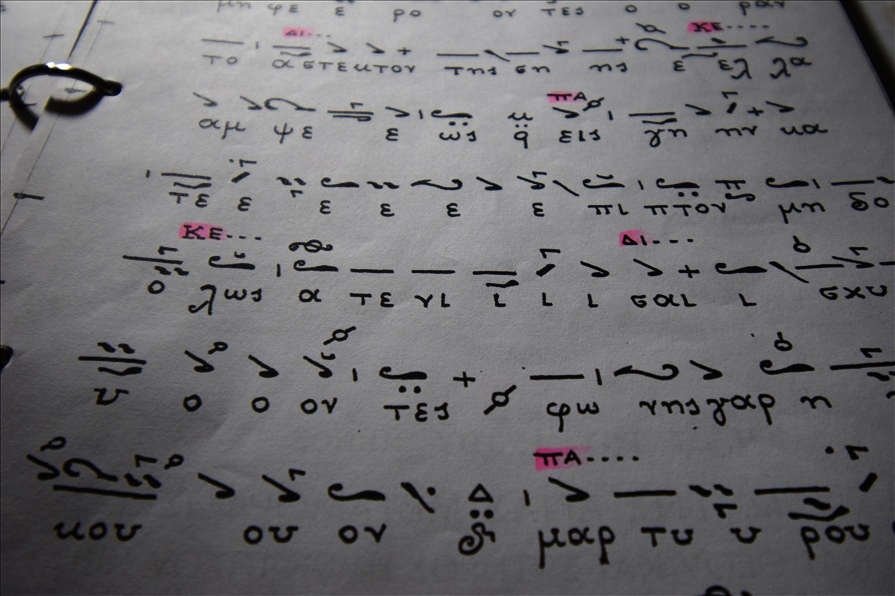 μη φε ε ρο ον τες ο ο ραν
Δι...· ΚΕ·····
το α στε κτον της ση ης ε ελ λα
πΑ
αμ ψε ε ως q̈ εις γη ην κα
τε ε ε ε ε ε πι πτον μη δο
ΚΕ···· Δι····
ο λως α τε νι ι ι ι σαι ι σχυ
υ ο ο ον τες φω νης γαρ η
πΑ·····
κου ου ον μαρ τυ υ ρου